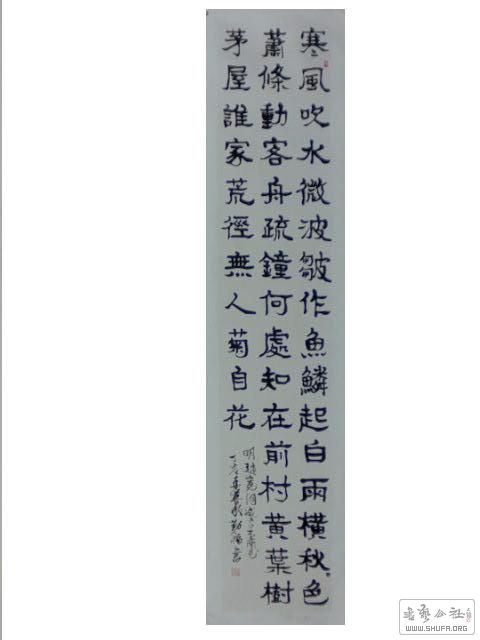 寒風吹水微波皺作魚鱗起白雨橫秋色
蕭條動客舟疏鐘何處知在前村黃葉樹
茅屋誰家荒徑無人菊自花
明
丁亥
書
WWW.SHUFA.ORG